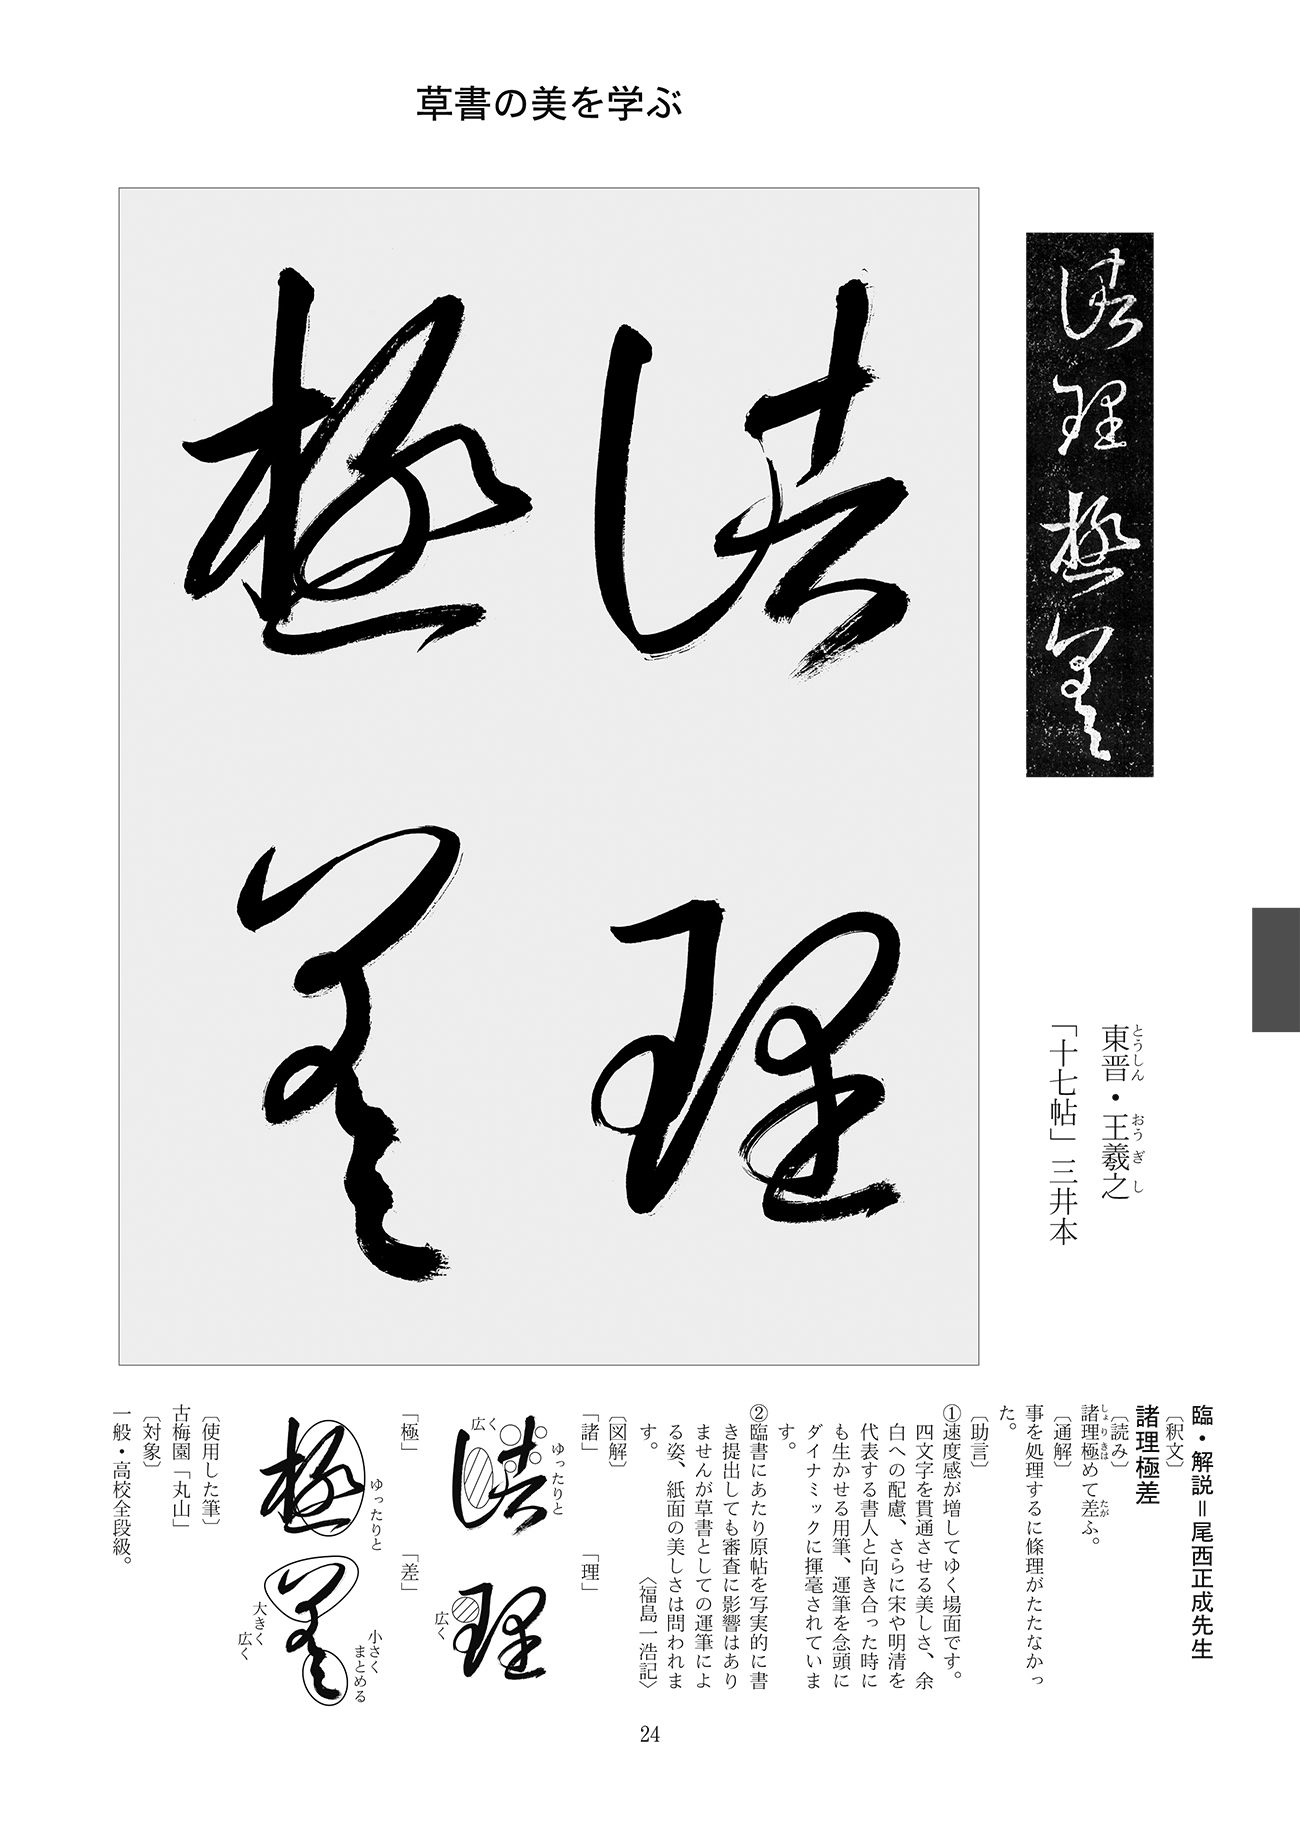 草書の美を学ぶ
諸理極差
東晋・王羲之
とうしん おうぎし
「十七帖」三井本
諸理
極差
臨・解説＝尾西正成先生
〔釈文〕
諸理極差
〔読み〕
諸理極めて差ふ。
しょりきは たが
〔通解〕
事を処理するに條理がたたなかっ
た。
〔助言〕
①速度感が増してゆく場面です。
四文字を貫通させる美しさ、余
白への配慮、さらに宋や明清を
代表する書人と向き合った時に
も生かせる用筆、運筆を念頭に
ダイナミックに揮毫されていま
す。
②臨書にあたり原帖を写実的に書
き提出しても審査に影響はあり
ませんが草書としての運筆によ
る姿、紙面の美しさは問われま
す。
〈福島一浩記〉
〔図解〕
「諸」
「理」
ゆったりと
広く
諸
広く
理
「極」
「差」
ゆったりと
極
小さく
まとめる
大きく
広く
差
〔使用した筆〕
古梅園「丸山」
〔対象〕
一般・高校全段級。
24